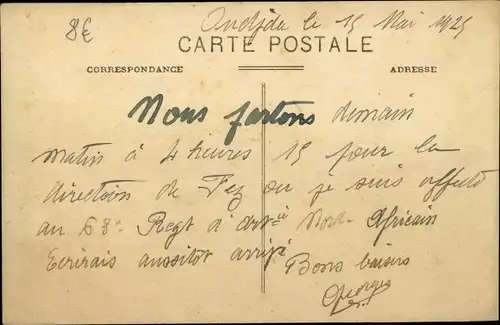 8€
Oudjda le 15 Mai 1925
CARTE POSTALE
CORRESPONDANCE
ADRESSE
Nous partons demain
matin à 4 heures 15 pour la
direction de Fez ou je suis affecté
au 63e Regt d'art ie Nord-Africain
Ecrirais aussitot arrivé
Bons baisers
Georges